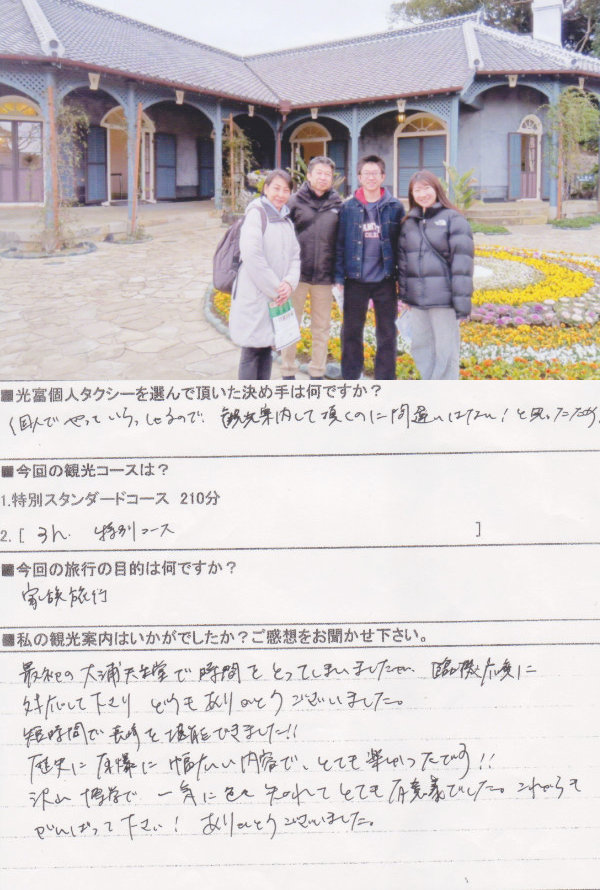 ■光富個人タクシーを選んで頂いた決め手は何ですか？
個人でやっていらっしゃるので、観光案内して頂くのに間違いはない！と思ったため。
■今回の観光コースは？
1.特別スタンダードコース 210分
2.[ 3h. 特別コース ]
■今回の旅行の目的は何ですか？
家族旅行
■私の観光案内はいかがでしたか？ご感想をお聞かせ下さい。
最初の大浦天主堂で時間をとってしまいましたが、臨機応変に
対応して下さり どうもありがとうございました。
短時間で長崎を堪能できました!!
歴史に原爆に幅広い内容で、とても楽しかったです!!
沢山 博学で 一気に色々 知れて とても有意義でした。これからも
がんばって下さい！ ありがとうございました。